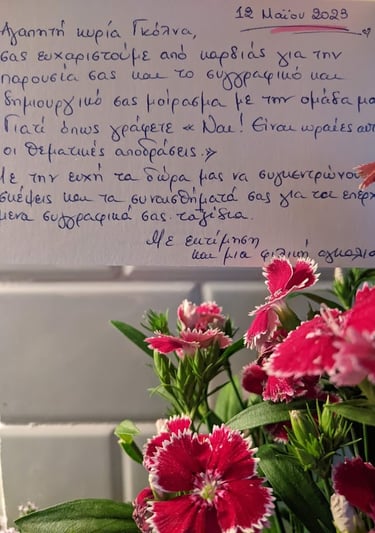 12 Μαΐου 2023
Αγαπητή κυρία Γκόλνα,
σας ευχαριστούμε από καρδιάς για την
παρουσία σας και το συγγραφικό και
δημιουργικό σας μοίρασμα με την ομάδα μα
Γιατί όπως γράφετε « Ναι! Είναι ωραίες αυτ
οι θεματικές αποδράσεις.»
Με την ευχή τα δώρα μας να συγκεντρώνου
σκέψεις και τα συναισθήματά σας για τα επερχ
μενα συγγραφικά σας ταξίδια.
Με εκτίμηση
και μια φιλική αγκαλιά